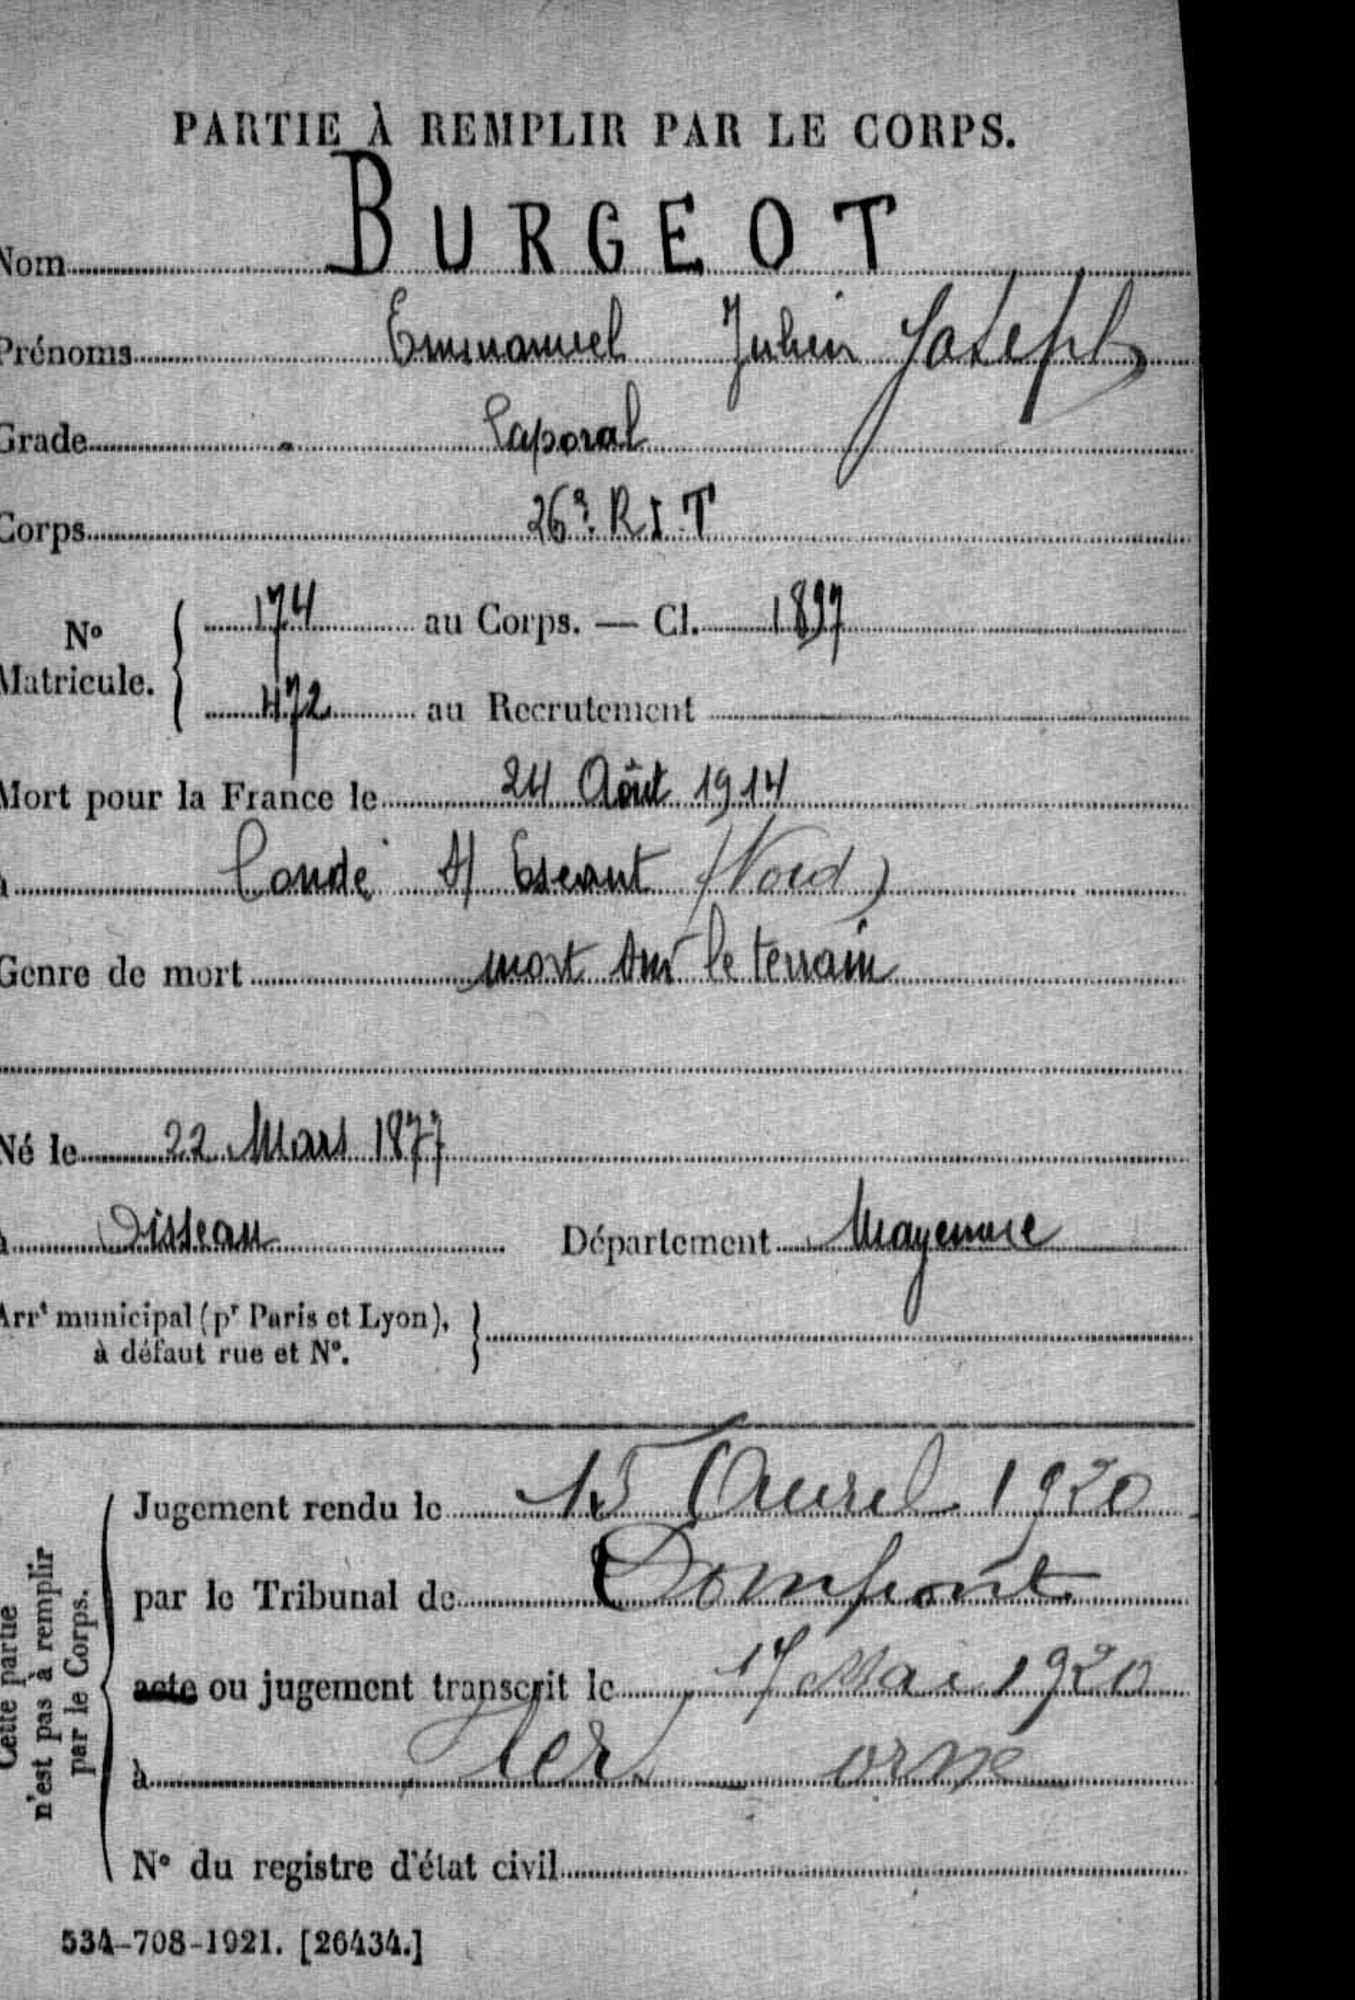 PARTIE À REMPLIR PAR LE CORPS.
Nom BURGEOT
Prénoms Emmanuel Julien Joseph
Grade Caporal
Corps 26e R.I.T
N° Matricule. { 174 au Corps. — Cl. 1897
472 au Recrutement
Mort pour la France le 24 Août 1914
à Condé s/ Escaut (Nord)
Genre de mort mort sur le terrain
Né le 22 Mars 1877
à Oisseau Département Mayenne
Arrt municipal (pr Paris et Lyon), à défaut rue et N°. }
Cette partie n'est pas à remplir par le Corps.
Jugement rendu le 15 Avril 1920
par le Tribunal de Domfront
acte ou jugement transcrit le 17 Mai 1920
à Fler orne
N° du registre d'état civil
534-708-1921. [26434.]